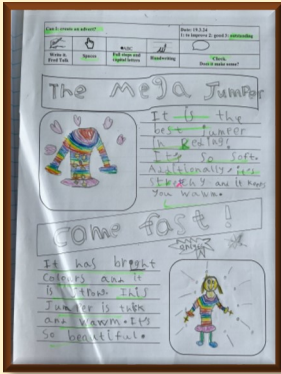 Can I create an advert?
Date: 19.3.24
1: to improve 2: good 3: outstanding
Write it Fred Talk
Spaces
ABC
Full stops and capital letters
Handwriting
Check. Does it make sense?
The Mega Jumper
It is the
best Jumper
in
It's so soft.
Additionally it's
strechy and it keeps
you wawm.
come fast!
It has bright
colours and it
is This
Jumper is thick
and wawm. It's
so beautiful.